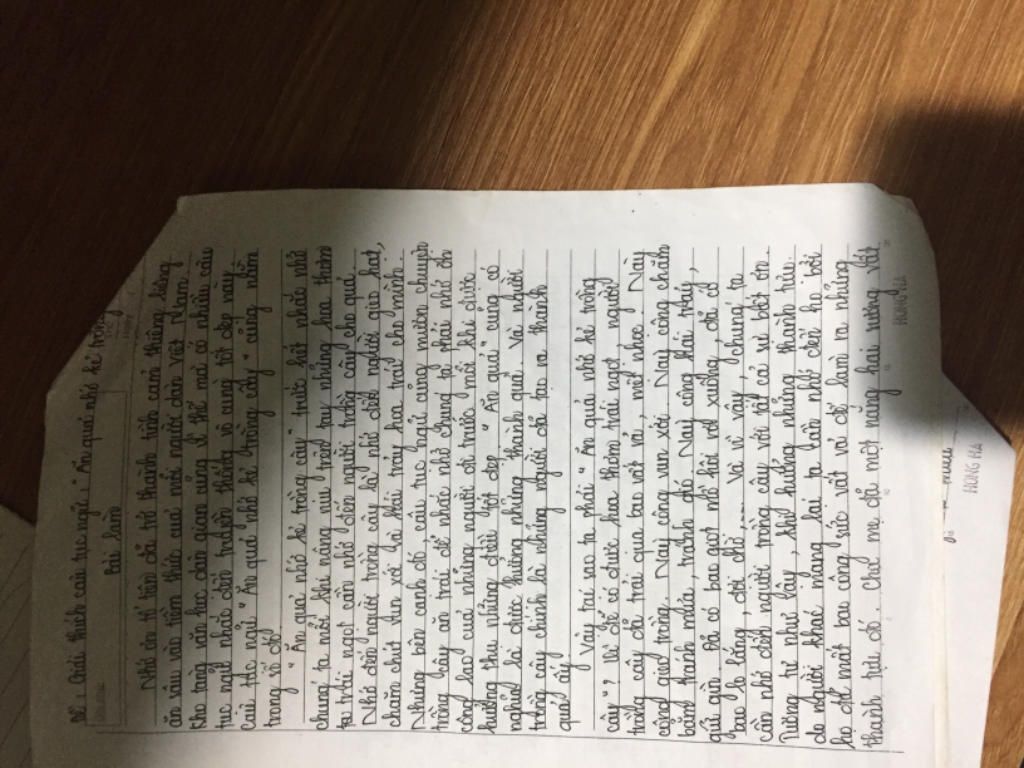 Đề: Giải thích câu tục ngữ: "Ăn quả nhớ kẻ trồng
Bài làm
Nhớ ơn từ
ăn sâu vào tiềm thức của mỗi người dân Việt Nam.
kho tàng văn học dân gian cũng vì thế mà có nhiều câu
tục ngữ nhắc đến truyền thống vô cùng tốt đẹp này.
Câu tục ngữ "Ăn quả nhớ kẻ trồng cây" cũng nằm
trong số đó.
"Ăn quả nhớ kẻ trồng cây" trước hết nhắc nhở
chúng ta mỗi khi nâng niu trên tay những hoa thơm
trái ngọt cần nhớ đến người trồng cây cho quả.
Nhớ đến người trồng cây là nhớ đến người gieo hạt,
chăm chút vun xới và hái trẩy hoa trái cho mình.
Nhưng bên cạnh đó câu tục ngữ cũng mượn chuyện
trồng cây ăn trái để nhắc nhở chúng ta phải nhớ ơn
công lao của những người đi trước mỗi khi được
hưởng thụ những điều tốt đẹp. "Ăn quả" cũng có
nghĩa là được hưởng những thành quả. Và người
trồng cây chính là những người đã tạo ra thành
quả ấy.
Vậy tại sao ta phải "Ăn quả nhớ kẻ trồng
cây"? Vì để có được hoa thơm trái ngọt người
trồng cây đã trải qua bao vất vả, mệt nhọc. Này
công gieo trồng. Này công vun xới. Này công chăm
bẵm tránh mưa, tránh gió. Này công hái trảy,
Đã có bao giọt mồ hôi rơi xuống, đã có
bao lo lắng, đợi chờ,.... Và vì vậy, chúng ta
cần nhớ đến người trồng cây với tất cả sự biết ơn.
Tương tự như vậy, khi hưởng những thành tựu
do người khác mang lại ta cần nhớ đến họ bởi
họ đã mất bao công sức vất vả để làm ra những
thành tựu đó. Cha mẹ đã một nắng hai sương vất
HONG HA
HONG HA